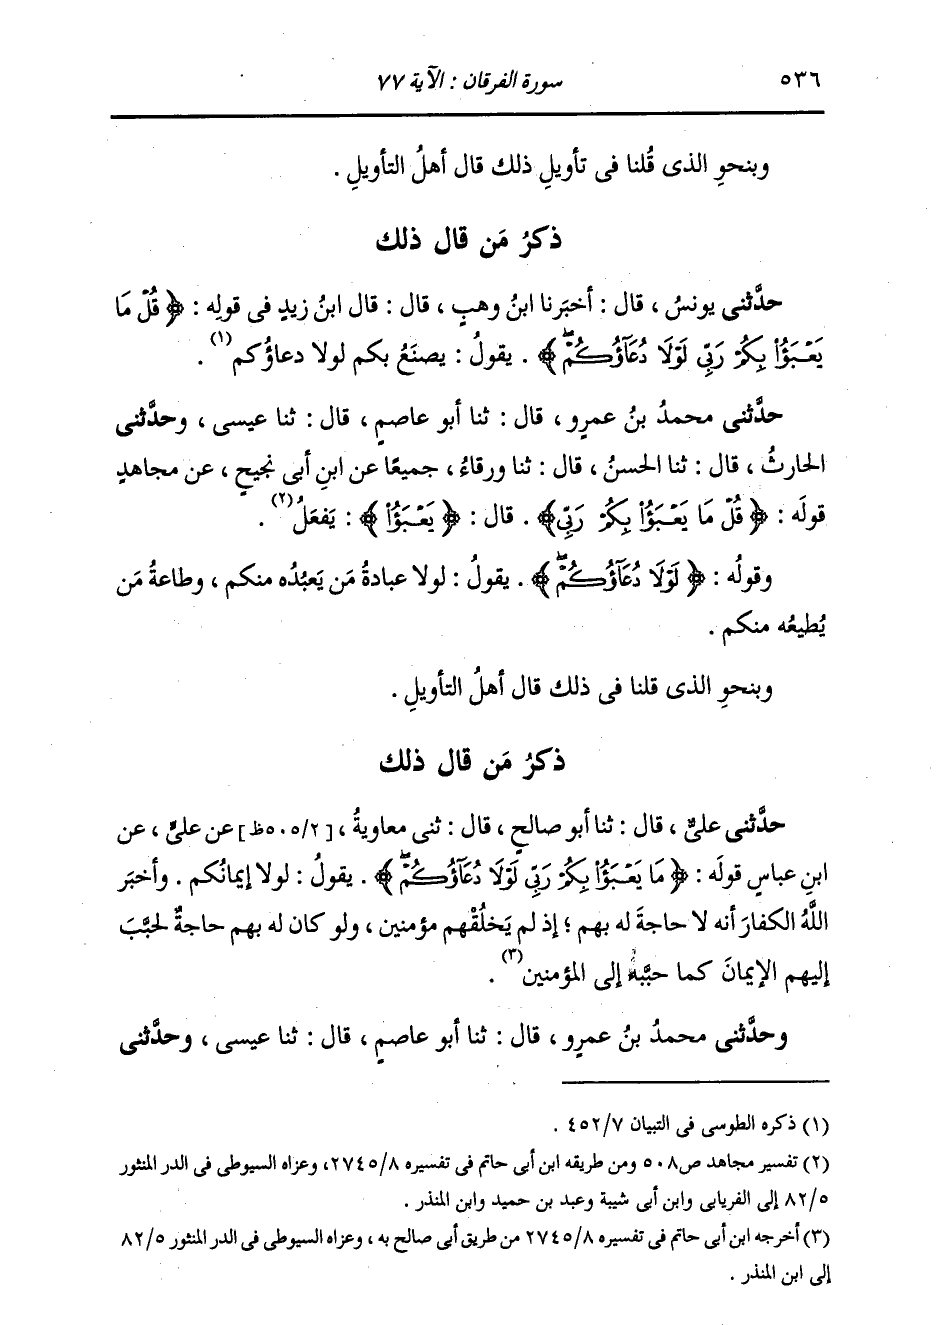 ٥٣٦
سورة الفرقان : الآية ٧٧
وبنحوِ الذى قُلنا فى تأويلِ ذلك قال أهلُ التأويلِ .
ذكرُ مَن قال ذلك
حدَّثنى يونسُ ، قال : أخبَرنا ابنُ وهبٍ ، قال : قال ابنُ زيدٍ فى قولِه : ﴿ قُلْ مَا
يَعْبَؤُاْ بِكُمْ رَبِّى لَوْلَا دُعَآؤُكُمْ ۖ ﴾ . يقولُ : يصنَعُ بكم لولا دعاؤُكم(١) .
حدَّثنى محمدُ بنُ عمرٍو ، قال : ثنا أبو عاصمٍ ، قال : ثنا عيسى ، وحدَّثنى
الحارثُ ، قال : ثنا الحسنُ ، قال : ثنا ورقاءُ ، جميعًا عن ابنِ أبى نجيحٍ ، عن مجاهدٍ
قولَه : ﴿ قُلْ مَا يَعْبَؤُاْ بِكُمْ رَبِّى ﴾ . قال : ﴿ يَعْبَؤُاْ ﴾ : يَفعَلُ(٢) .
وقولُه : ﴿ لَوْلَا دُعَآؤُكُمْ ۖ ﴾ . يقولُ : لولا عبادةُ مَن يَعبُدُه منكم ، وطاعةُ مَن
يُطيعُه منكم .
وبنحوِ الذى قلنا فى ذلك قال أهلُ التأويلِ .
ذكرُ مَن قال ذلك
حدَّثنى علىٌّ ، قال : ثنا أبو صالحٍ ، قال : ثنى معاويةُ ، [٥٠٥/٢ظ] عن علىٍّ ، عن
ابنِ عباسٍ قولَه : ﴿ مَا يَعْبَؤُاْ بِكُمْ رَبِّى لَوْلَا دُعَآؤُكُمْ ۖ ﴾ . يقولُ : لولا إيمانُكم . وأخبَر
اللَّهُ الكفارَ أنه لا حاجةَ له بهم ؛ إذ لم يَخلُقْهم مؤمنين ، ولو كان له بهم حاجةٌ لحبَّبَ
إليهم الإيمانَ كما حبَّبه إلى المؤمنين(٣) .
وحدَّثنى محمدُ بنُ عمرٍو ، قال : ثنا أبو عاصمٍ ، قال : ثنا عيسى ، وحدَّثنى
(١) ذكره الطوسى فى التبيان ٤٥٢/٧ .
(٢) تفسير مجاهد ص٥٠٨ ومن طريقه ابن أبى حاتم فى تفسيره ٢٧٤٥/٨، وعزاه السيوطى فى الدر المنثور
٨٢/٥ إلى الفريابى وابن أبى شيبة وعبد بن حميد وابن المنذر .
(٣) أخرجه ابن أبى حاتم فى تفسيره ٢٧٤٥/٨ من طريق أبى صالح به ، وعزاه السيوطى فى الدر المنثور ٨٢/٥
إلى ابن المنذر .